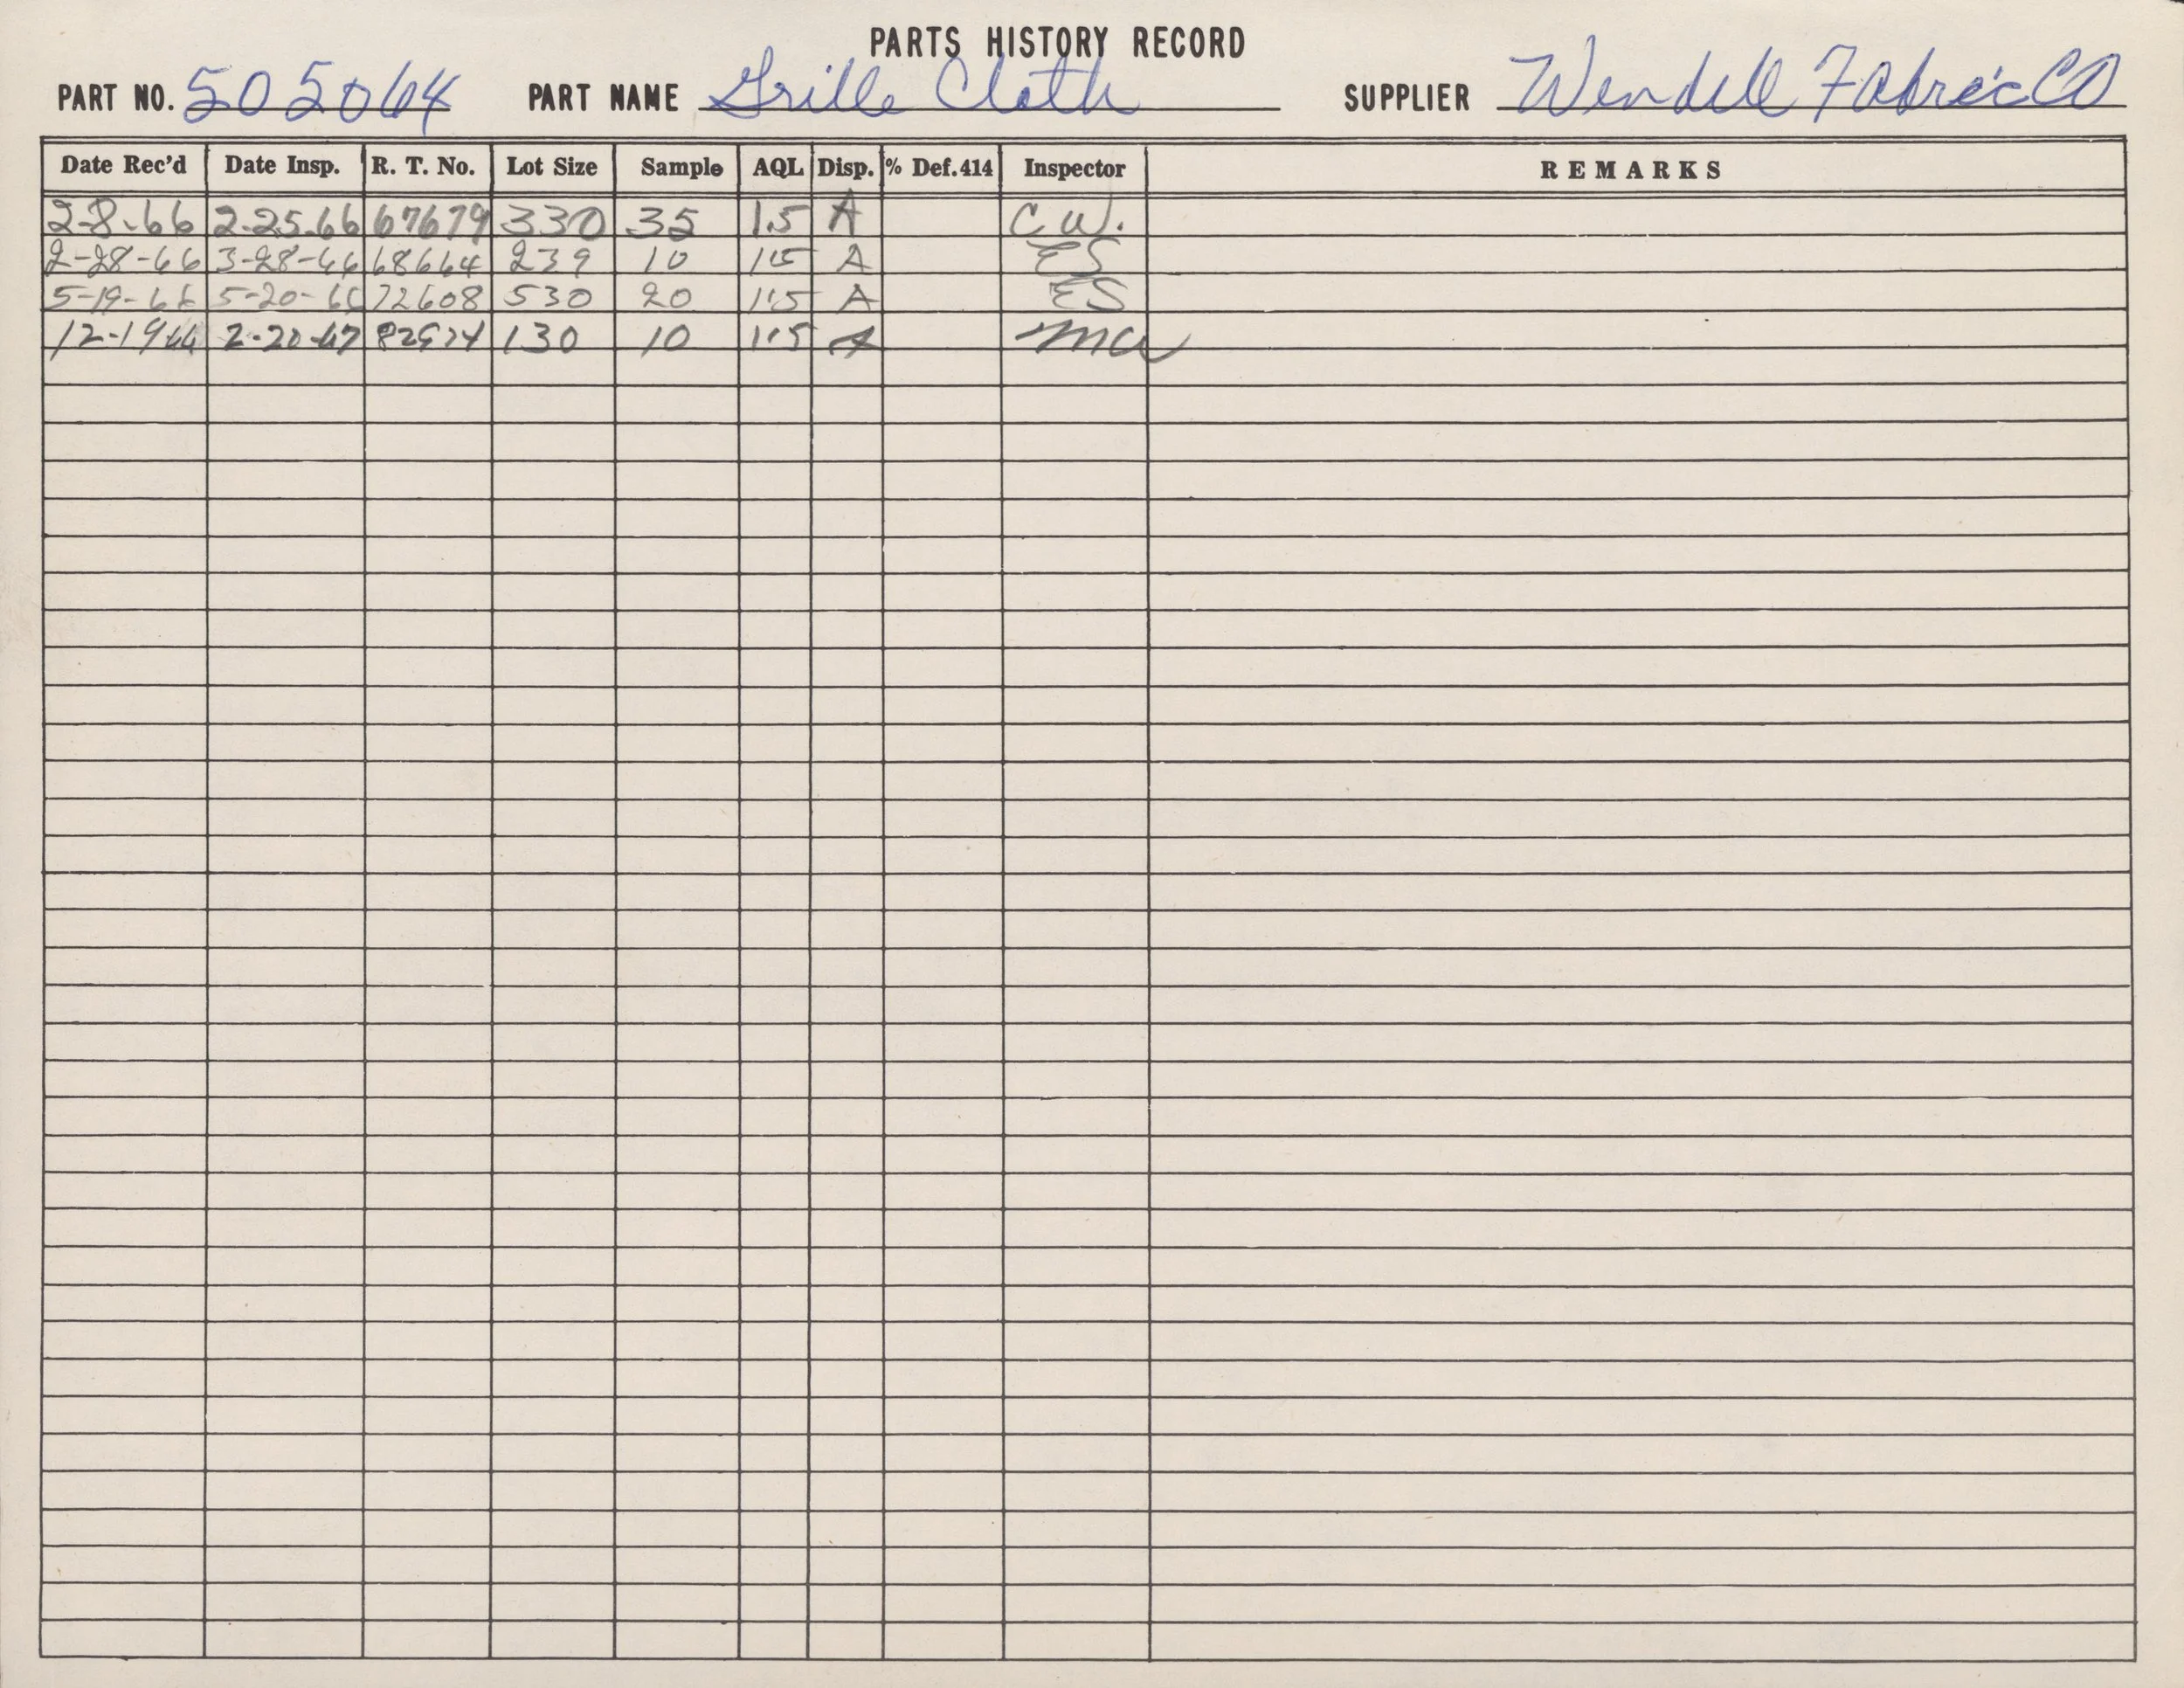 PARTS HISTORY RECORD
PART NO. 505064 PART NAME Grille Cloth SUPPLIER Wendell Fabric CO
Date Rec'd Date Insp. R. T. No. Lot Size Sample AQL Disp. % Def.414 Inspector REMARKS
2-8-66 2-25-66 67679 330 35 1.5 A C.W.
2-28-66 3-28-66 68664 239 10 1.5 A ES
5-19-66 5-20-66 72608 530 20 1.5 A ES
12-19 66 2-20-67 130 10 1.5 A